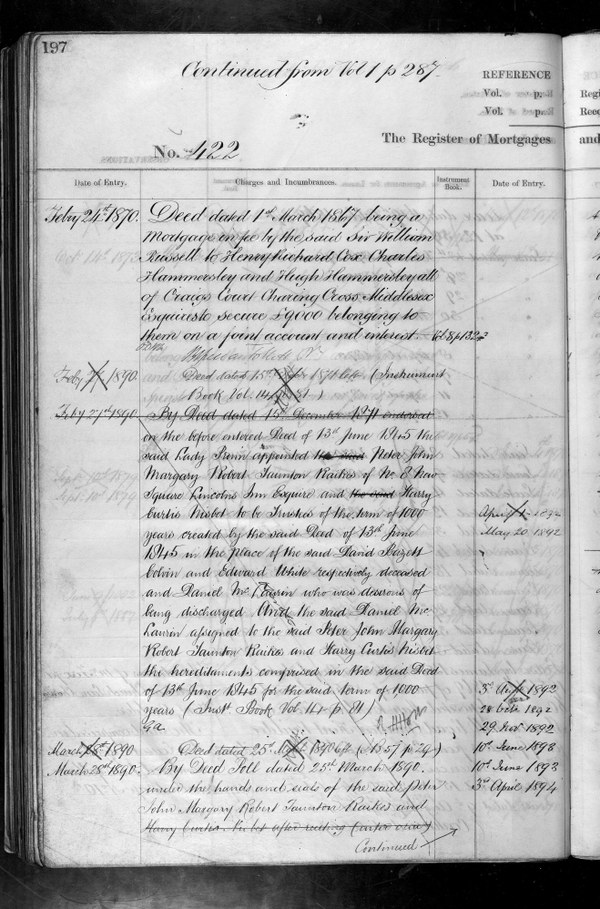 197
Continued from Vol 1 p 287.
REFERENCE
Vol. p.
Vol. p.
Regi
Reco
No. 422
The Register of Mortgages
and
Date of Entry.
Charges and Incumbrances.
Instrument Book.
Date of Entry.
Feby 24th 1870.
Deed dated 1st March 1867 being a
Mortgage in fee by the said Sir William
Russell to Henry Richard Cox Charles
Hammersley and Hugh Hammersley all
of Craigs Court Charing Cross Middlesex
Esquires to secure £9000 belonging to
them on a joint account and interest.
Vol 8 p 132
Feby 1890.
Deed dated 15th 1871 (Instrument
Book Vol. 14 p. 81)
Feby 27th 1890
By Deed dated 15th December 1871 endorsed
on the before entered Deed of 13th June 1845 the
said Lady Flinn appointed the said Peter John
Margary Robert Taunton Raikes of No. 8 New
Square Lincolns Inn Esquire and the said Harry
Curtis Nisbet to be Trustees of the term of 1000
years created by the said Deed of 13th June
1845 in the place of the said David
Colvin and Edward White respectively deceased
and Daniel McLaurin who was desirous of
being discharged And the said Daniel Mc
Laurin assigned to the said Peter John Margary
Robert Taunton Raikes and Harry Curtis Nisbet
the hereditaments comprised in the said Deed
of 13th June 1845 for the said term of 1000
years (Inst. Book Vol. 14 p. 81)
April 1892
May 20 1892
3rd 1892
28 Octr 1892
29. Novr 1892
March 28th 1890
Deed dated 25th 1890 (15 57 p 29)
10th June 1893
March 28th 1890.
By Deed Poll dated 25th March 1890.
10th June 1893
under the hands and seals of the said Peter
3rd April 1894
John Margary Robert Taunton Raikes and
Harry Curtis Nisbet after reciting
Continued